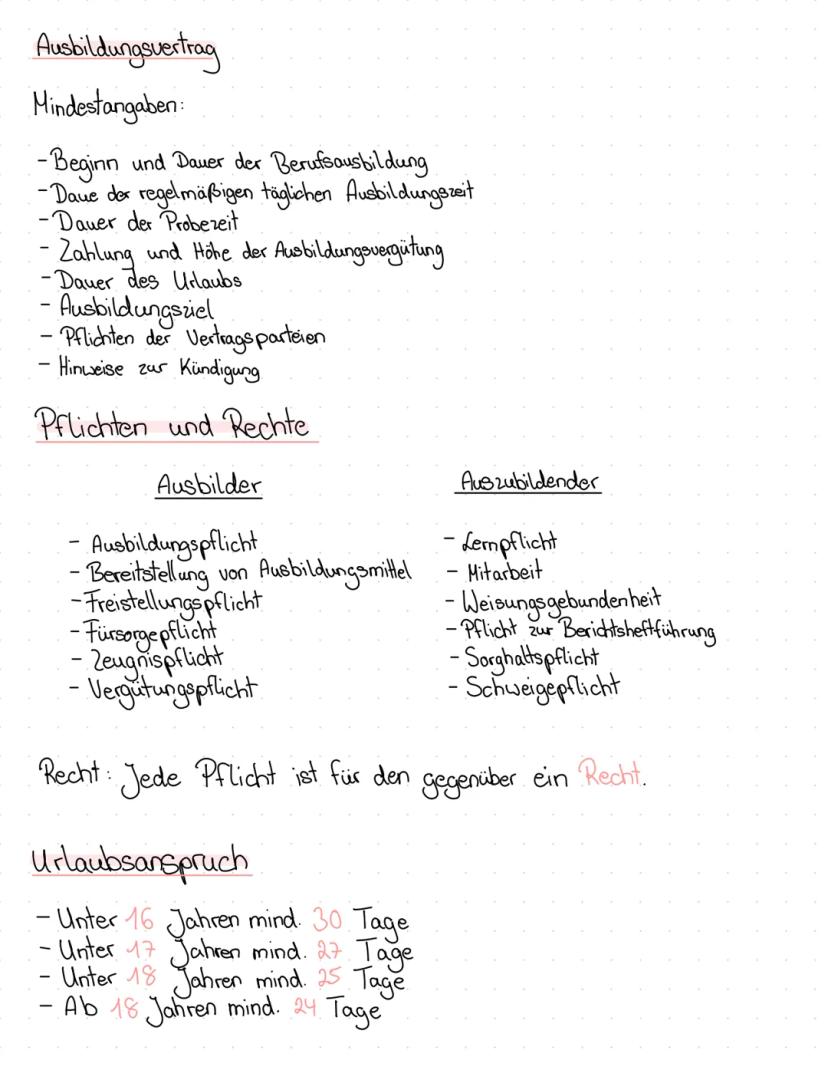 Ausbildungsvertrag
Mindestangaben:
- Beginn und Dauer der Berufsausbildung
- Daue der regelmäßigen täglichen Ausbildungszeit
- Dauer der Probezeit
- Zahlung und Höhe der Ausbildungsvergütung
- Dauer des Urlaubs
- Ausbildungsziel
- Pflichten der Vertragsparteien
- Hinweise zur Kündigung
Pflichten und Rechte
Ausbilder
- Ausbildungspflicht
- Bereitstellung von Ausbildungsmittel
- Freistellungspflicht
- Fürsorgepflicht
- Zeugnispflicht
- Vergütungspflicht
Auszubildender
- Lernpflicht
- Mitarbeit
- Weisungsgebundenheit
- Pflicht zur Berichtsheftführung
- Sorghaltspflicht
- Schweigepflicht
Recht: Jede Pflicht ist für den gegenüber ein Recht.
Urlaubsanspruch
- Unter 16 Jahren mind. 30 Tage
- Unter 17 Jahren mind. 27 Tage
- Unter 18 Jahren mind. 25 Tage
- Ab 18 Jahren mind. 24 Tage